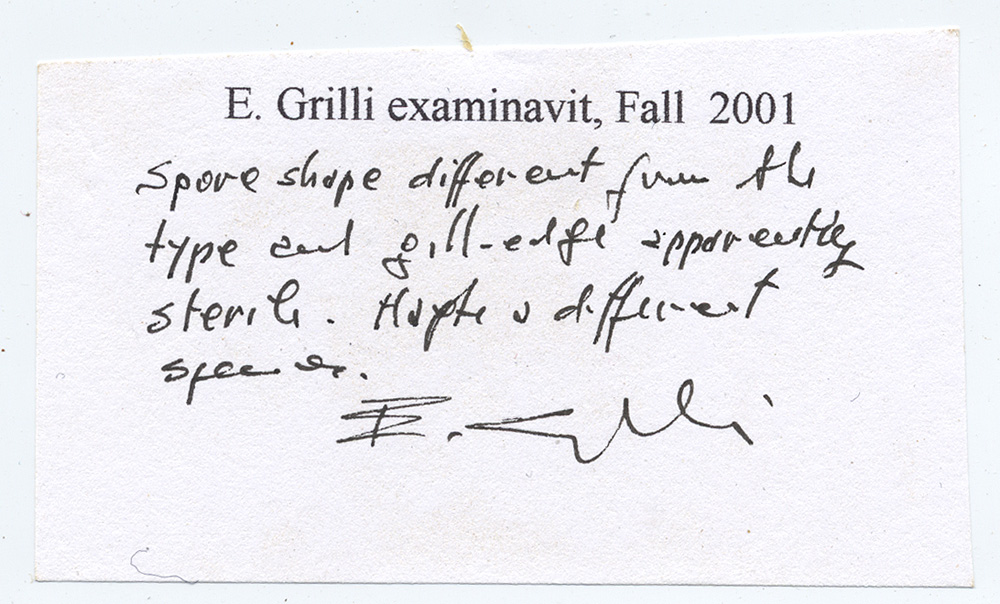 E. Grilli examinavit, Fall 2001
Spore shape different from the
type and gill-edge apparently
sterile. a different
species.
E. Grilli